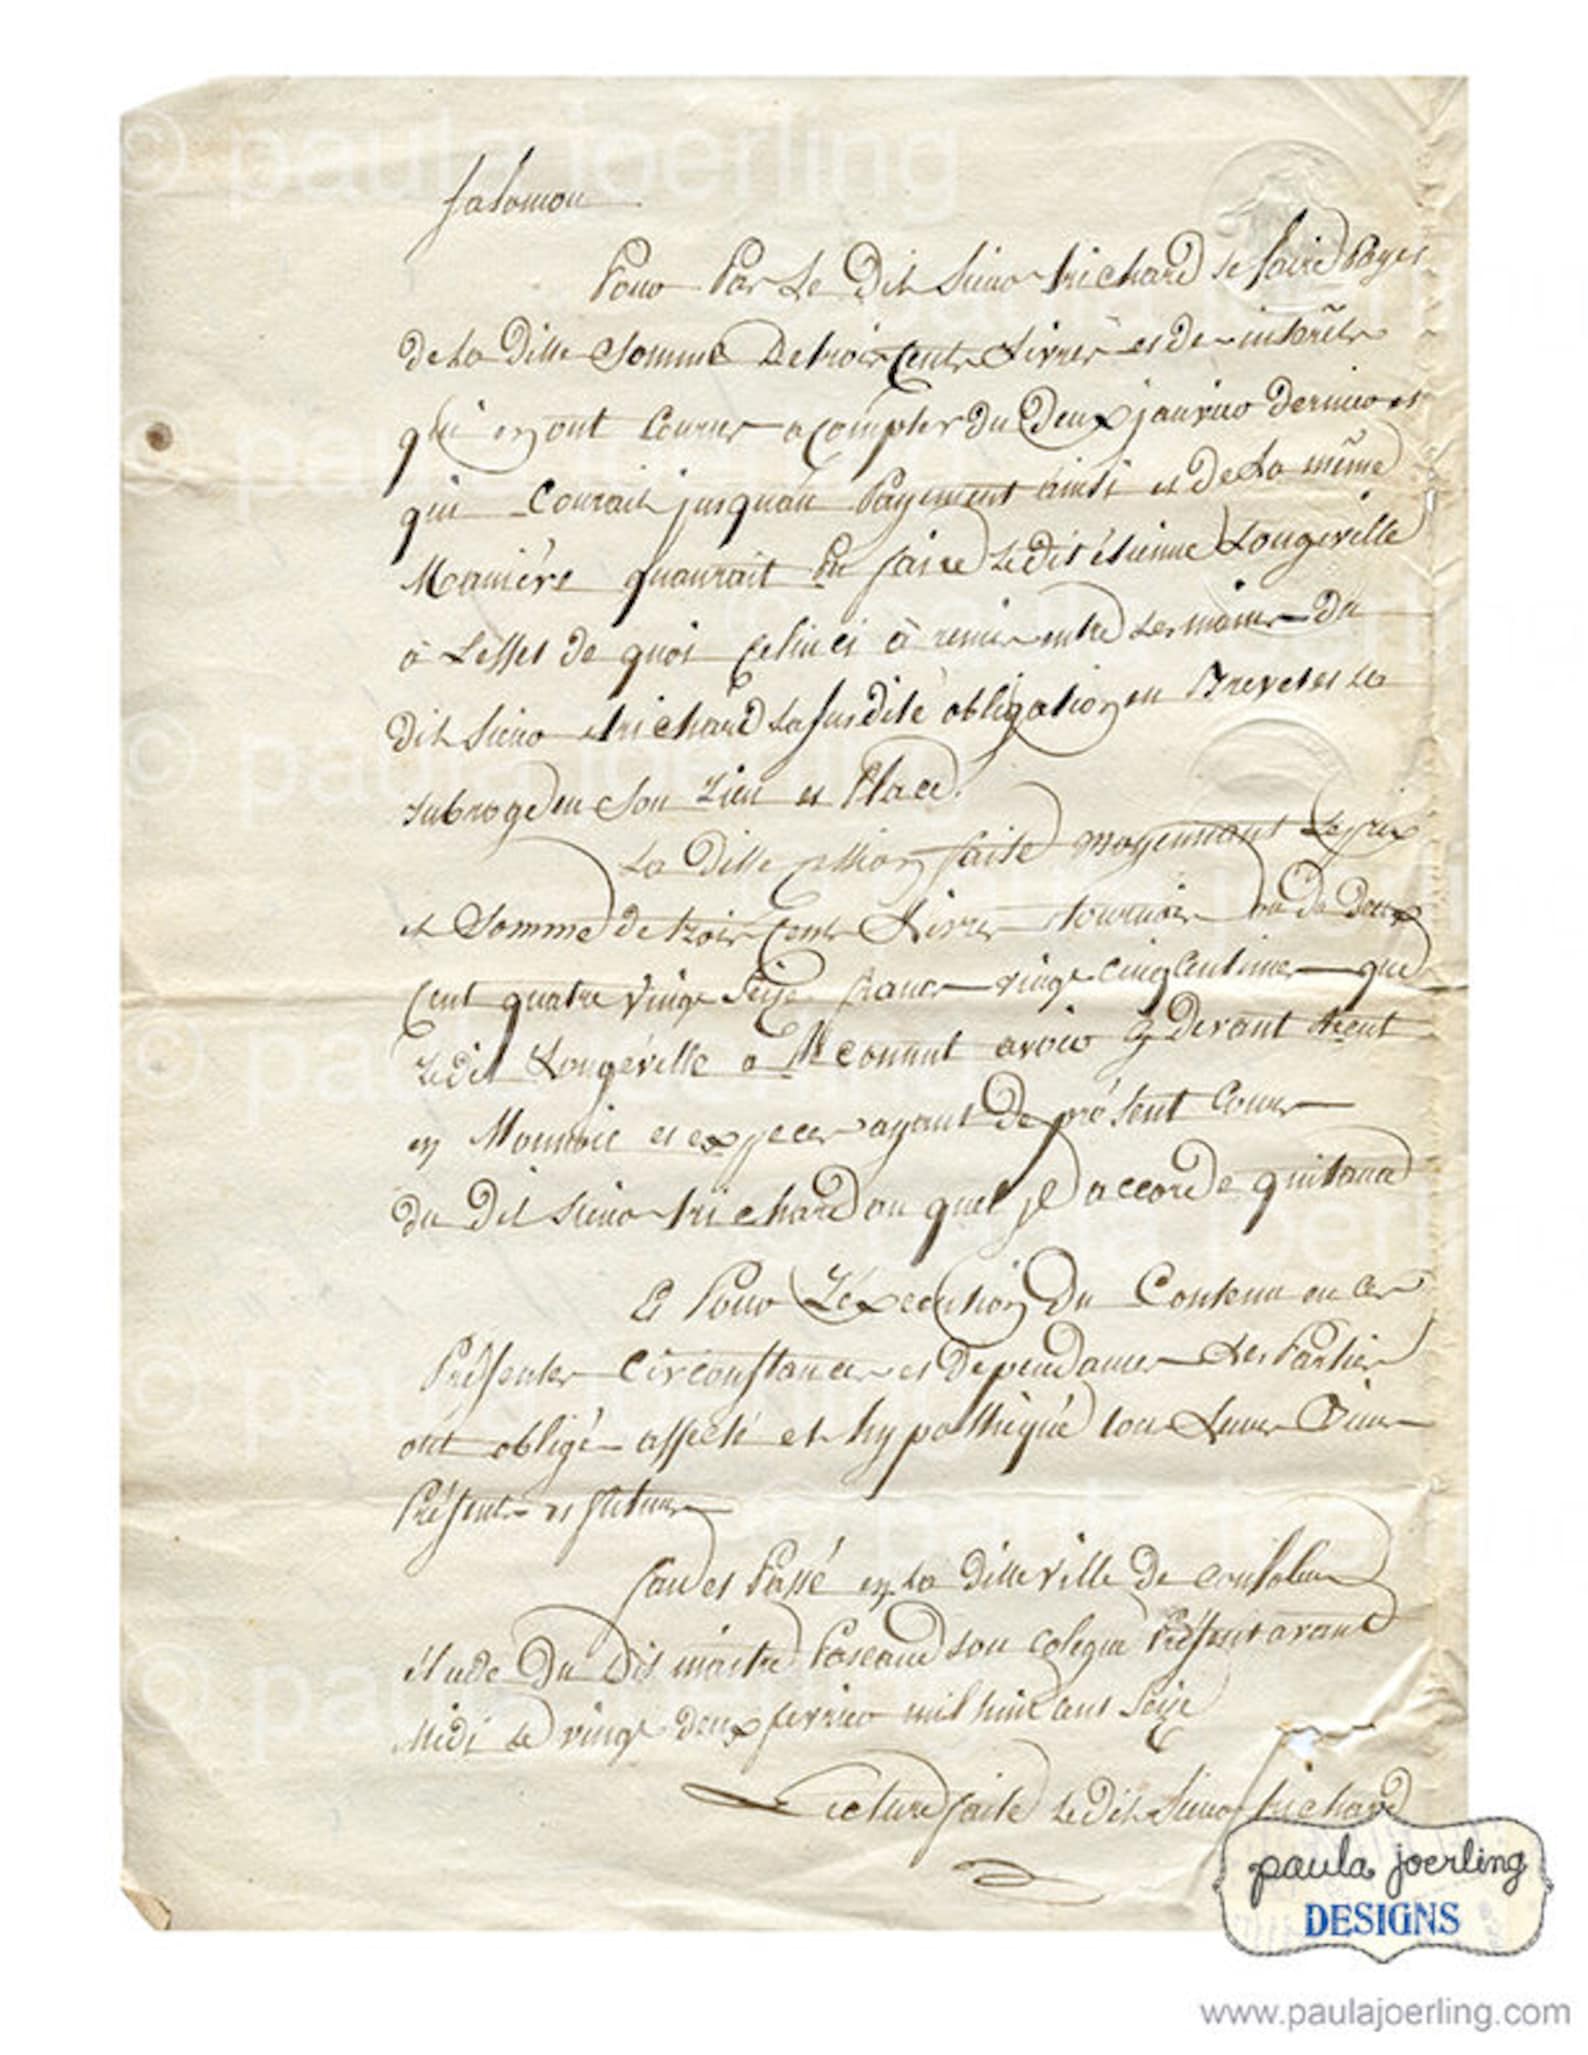 Salomon
Pour Par Le Dit Sieur trichard se faire Payer
de La Ditte Somme De trois Cents Livres et de intérêts
qui en ont Courrus a Compter du Deux janvier dernier et
qui Courait jusquau Payement ainsi et de La même
Manière quaurait pu faire Le dit étienne Longeville
à Leffet de quoi Celui ci à remis entre Les mains du
dit Sieur trichard La Susdite obligation en Brevet et Le
subroge en Son Lieu et Place.
La Ditte Cession faite moyennant Le prix
et Somme de trois Cents Livres tournois ou de Deux
Cent quatre vingt Seize francs vingt cinq Centimes que
Le dit Longéville a reconnut avoir cy devant
en Monnoie et expeces ayant De présent Cours
du Dit Sieur trichard au quel il accorde quitance
Et Pour L'éxecution Du Contenu en Ces
Présentes Circonstances et Dependances Les Parties
ont obligé affecté et hypothéqué tous Leurs Biens
Présents et futurs
fait et Passé en La Ditte ville de Confolens
étude Du Dit maitre Pascaud son Colegue Présent avant
Midi Le vingt deux fevrier mil huit cent Seize
Lecture faite Le dit Sieur trichard
paula joerling
DESIGNS
www.paulajoerling.com
© paula joerling